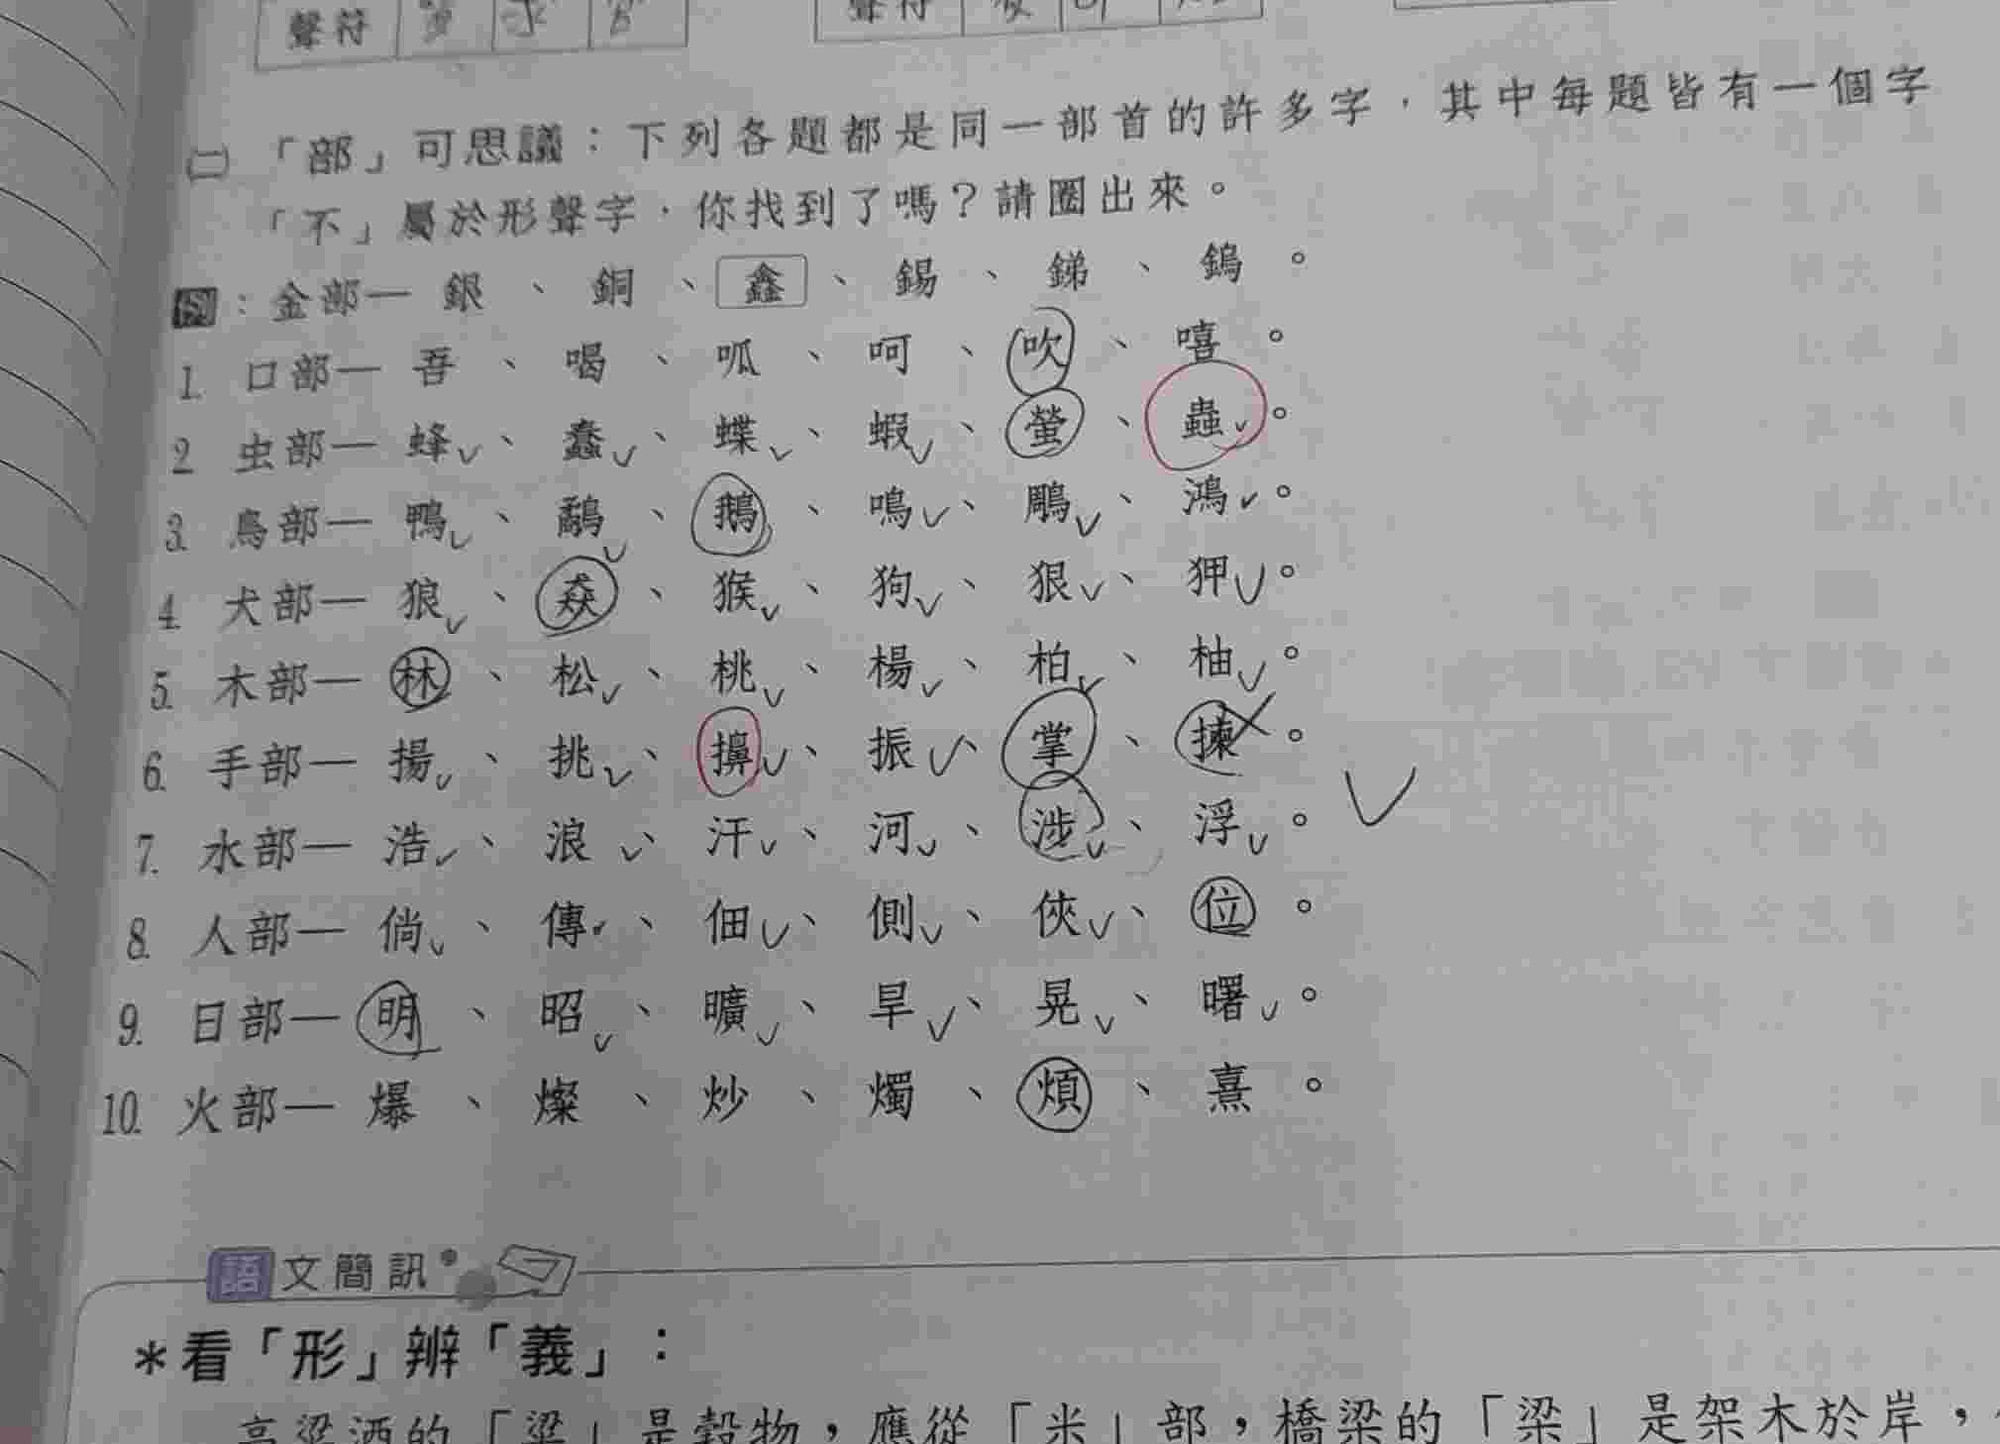 聲符
聲符
㈡「部」可思議：下列各題都是同一部首的許多字，其中每題皆有一個字
「不」屬於形聲字，你找到了嗎？請圈出來。
例：金部－銀、銅、鑫、錫、銻、鎢。
1. 口部－吾、喝、呱、呵、吹、嘻。
2. 虫部－蜂、蠢、蝶、蝦、螢、蟲。
3. 鳥部－鴨、鷸、鵝、鳴、鵰、鴻。
4. 犬部－狼、猋、猴、狗、狠、狎。
5. 木部－林、松、桃、楊、柏、柚。
6. 手部－揚、挑、擤、振、掌、揀。
7. 水部－浩、浪、汗、河、涉、浮。
8. 人部－倘、傳、佃、側、俠、位。
9. 日部－明、昭、曠、旱、晃、曙。
10. 火部－爆、燦、炒、燭、煩、熹。
語文簡訊
＊看「形」辨「義」：
高粱酒的「粱」是穀物，應從「米」部，橋梁的「梁」是架木於岸，